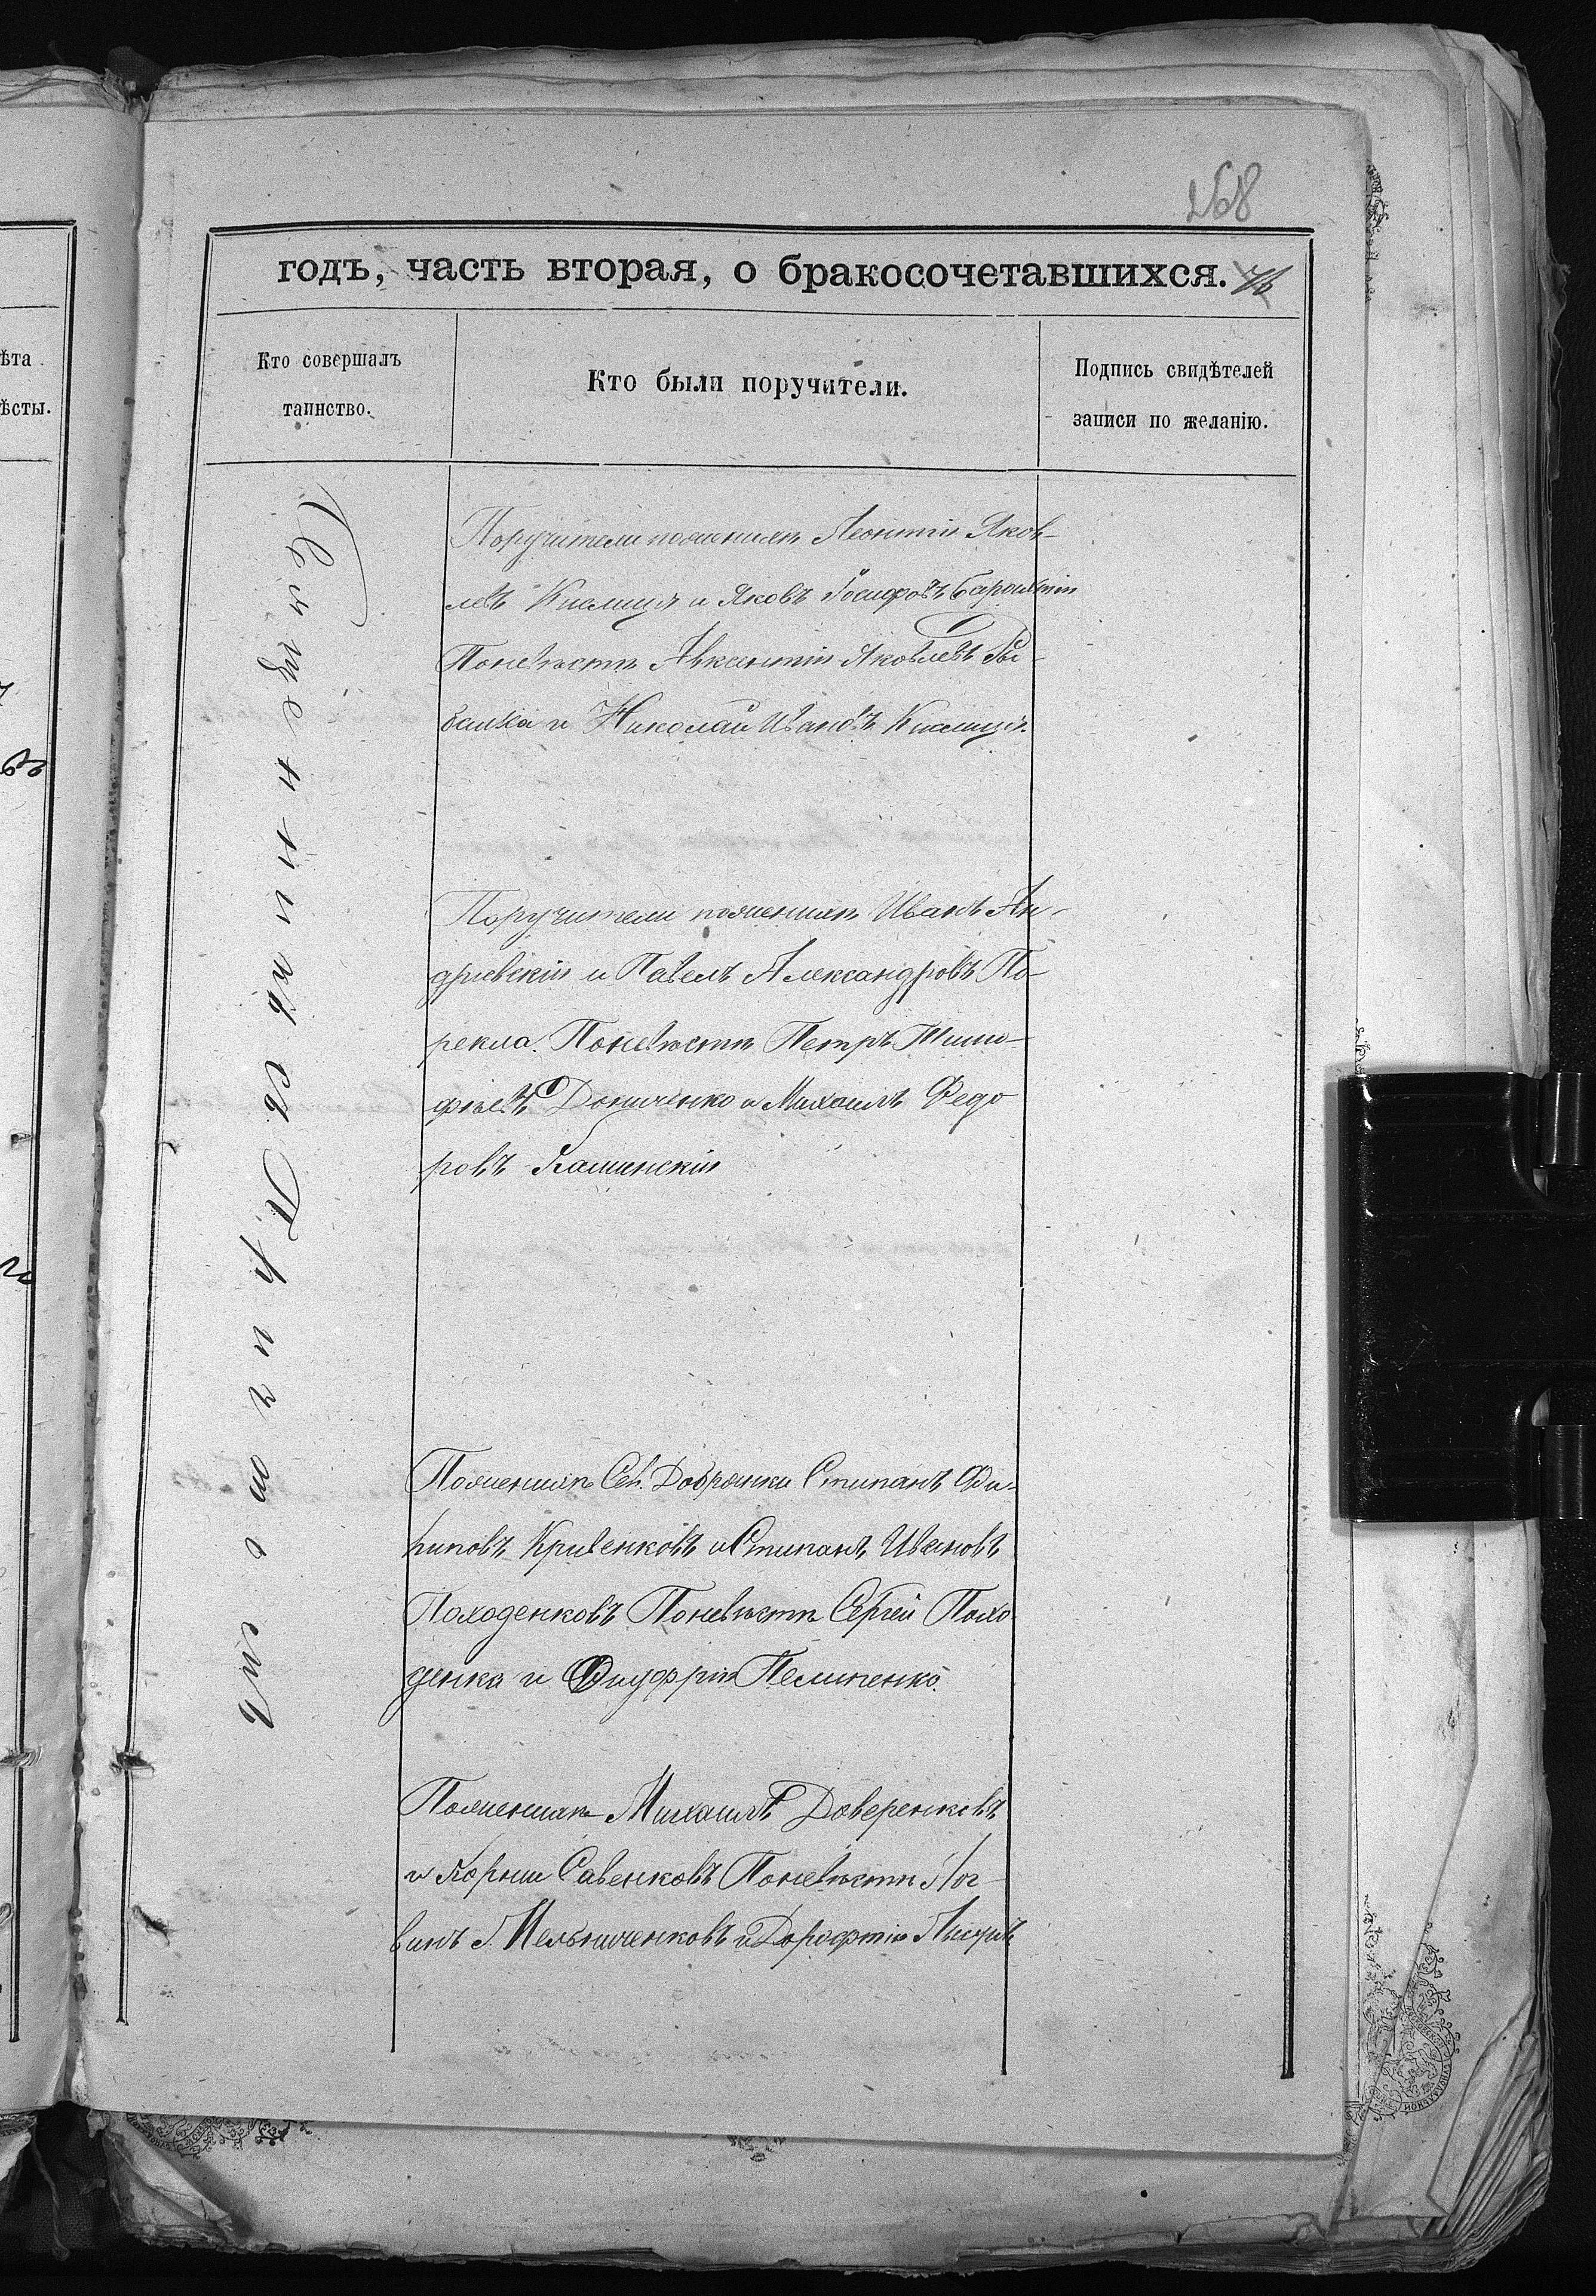 268
годъ, часть вторая, о бракосочетавшихся.
Кто совершалъ
таинство.
Кто были поручители.
Подпись свидѣтелей
записи по желанію.
ѣта
ѣсты.
Священникъ съ Діи
Поручители пожених Леонтій Яков-
левъ Кислица и Яковъ Іосифовъ
Поневѣсте Авксентій Яковлевъ Ры-
балка и Николай Ивановъ Кислица.
Поручители пожених Иванъ Ан-
дріевскій и Павелъ Александровъ По-
рекла. Поневѣсте Петръ Тимо-
фѣевъ Дониченко и Михаилъ Федо
ровъ Каминскій
Пожених Сел. Добрянки Стипанъ Фи-
липовъ Кривенковъ и Стипанъ Ивановъ
Походенковъ Поневѣсте Сергей Похо
денко и Онуфрій Пелипенко.
Пожених Михаилъ Доверенковъ
и Корнии Савенковъ Поневѣсте Лог-
винъ Мельниченковъ и Дорофтій